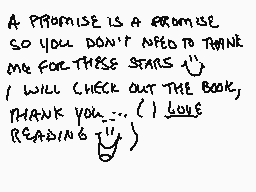 A PROMISE IS A PROMISE
SO YOU DON'T NEED TO THANK
ME FOR THESE STARS
I WILL CHECK OUT THE BOOK,
THANK YOU... (I LOVE
READING )